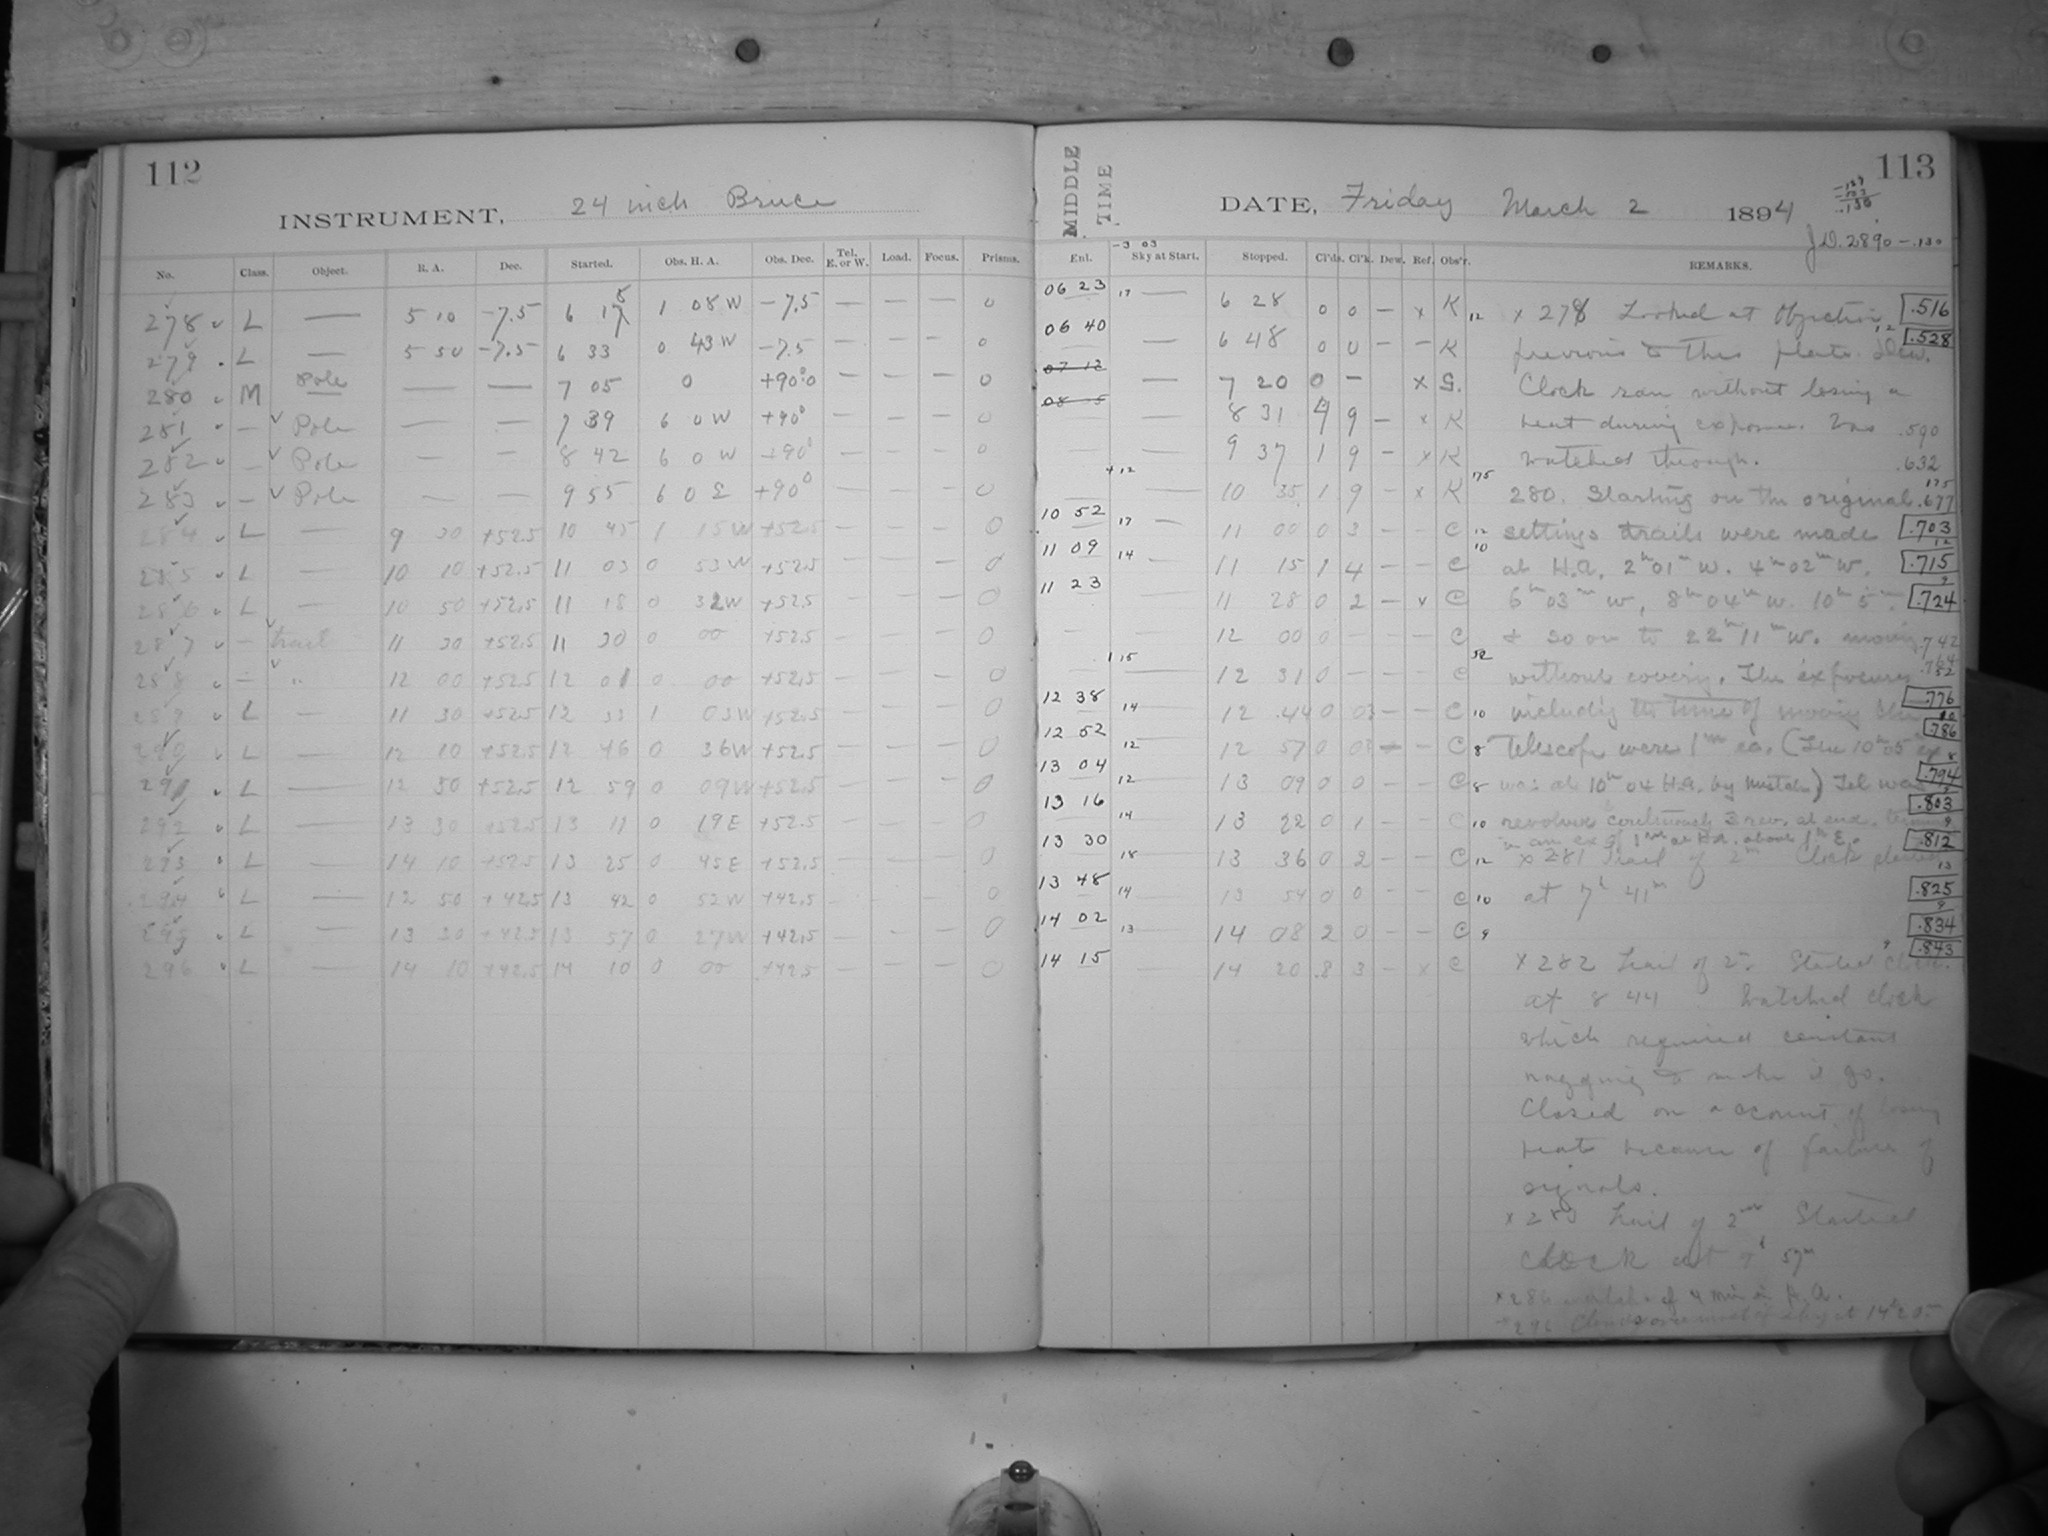 112
INSTRUMENT, 24 inch Bruce
No. Class. Object. R. A. Dec. Started. Obs. H. A. Obs. Dec. Tel. E. or W. Load. Focus. Prisms.
278 L — 5 10 -7.5 6 18 1 08 W -7.5 — — — 0
279 L — 5 50 -7.5 6 33 0 43 W -7.5 — — — 0
280 M Pole — — 7 05 0 +90°0 — — — 0
281 — Pole — — 7 39 6 0 W +90° — — — 0
282 — Pole — — 8 42 6 0 W +90° — — — 0
283 — Pole — — 9 55 6 0 E +90° — — — 0
284 L — 9 30 +52.5 10 45 1 15 W +52.5 — — — 0
285 L — 10 10 +52.5 11 03 0 53 W +52.5 — — — 0
286 L — 10 50 +52.5 11 18 0 32 W +52.5 — — — 0
287 — trail 11 30 +52.5 11 30 0 00 +52.5 — — — 0
288 — " 12 00 +52.5 12 01 0 00 +52.5 — — — 0
289 L — 11 30 +52.5 12 33 1 03 W +52.5 — — — 0
290 L — 12 10 +52.5 12 46 0 36 W +52.5 — — — 0
291 L — 12 50 +52.5 12 59 0 09 W +52.5 — — — 0
292 L — 13 30 +52.5 13 11 0 19 E +52.5 — — — 0
293 L — 14 10 +52.5 13 25 0 45 E +52.5 — — — 0
294 L — 12 50 +42.5 13 42 0 52 W +42.5 — — — 0
295 L — 13 30 +42.5 13 57 0 27 W +42.5 — — — 0
296 L — 14 10 +42.5 14 10 0 00 +42.5 — — — 0
MIDDLE TIME
113
DATE, Friday March 2 1894
J.D. 2890 -.130
-3 03
Enl. Sky at Start. Stopped. Cl'ds. Cl'k. Dew. Ref. Obs'r. REMARKS.
06 23 17 — 6 28 0 0 — x K 12 x 278 Looked at Objective .516
06 40 — 6 48 0 0 — — K previous to this plate. Dew. .528
07 12 — 7 20 0 — x G. Clock ran without losing a
— 8 31 4 9 — x K beat during exposure. Was .590
— — 9 37 1 9 — x K watched through. .632
+12 — 10 35 1 9 — x K 175 280. Starting on the original .677
10 52 17 — 11 00 0 3 — — C 12 settings trails were made .703
11 09 14 — 11 15 1 4 — — C 10 at H.A. 2h01m W. 4h02m W. .715
11 23 — 11 28 0 2 — v C 6h03m W, 8h04m W. 10h5m .724
— — 12 00 0 — — — C & so on to 22h11m W. moving .742
1 15 — 12 31 0 — — — C 52 without covering. The exposures
12 38 14 — 12 44 0 03 — — C 10 including the time of moving the .776
12 52 12 — 12 57 0 0 — — C 8 Telescope were 1m ea. (The 10h05m ex .786
13 04 12 — 13 09 0 0 — — C 8 was at 10h 04 H.A. by mistake) Tel was .794
13 16 14 — 13 22 0 1 — — C 10 revolved continuously 3 rev. at end. .803
13 30 18 — 13 36 0 2 — — C 12 in an ex of 1m at H.A. about 1h E. .812
x 281 Trail of 2m Clock
13 48 14 — 13 54 0 0 — — C 10 at 7h 41m .825
14 02 13 — 14 08 2 0 — — C 9 .834
14 15 — 14 20 .8 3 — x C x 282 Trail of 2m. Started clock. .843
at 8 44 Watched clock
which required constant
nagging to make it go.
Closed on account of losing
beats because of failure of
signals.
x 283 Trail of 2m Started
clock at 9h 57m
x 286 of 4 min in R.A.
x 296 Clouds over most of sky at 14h 20